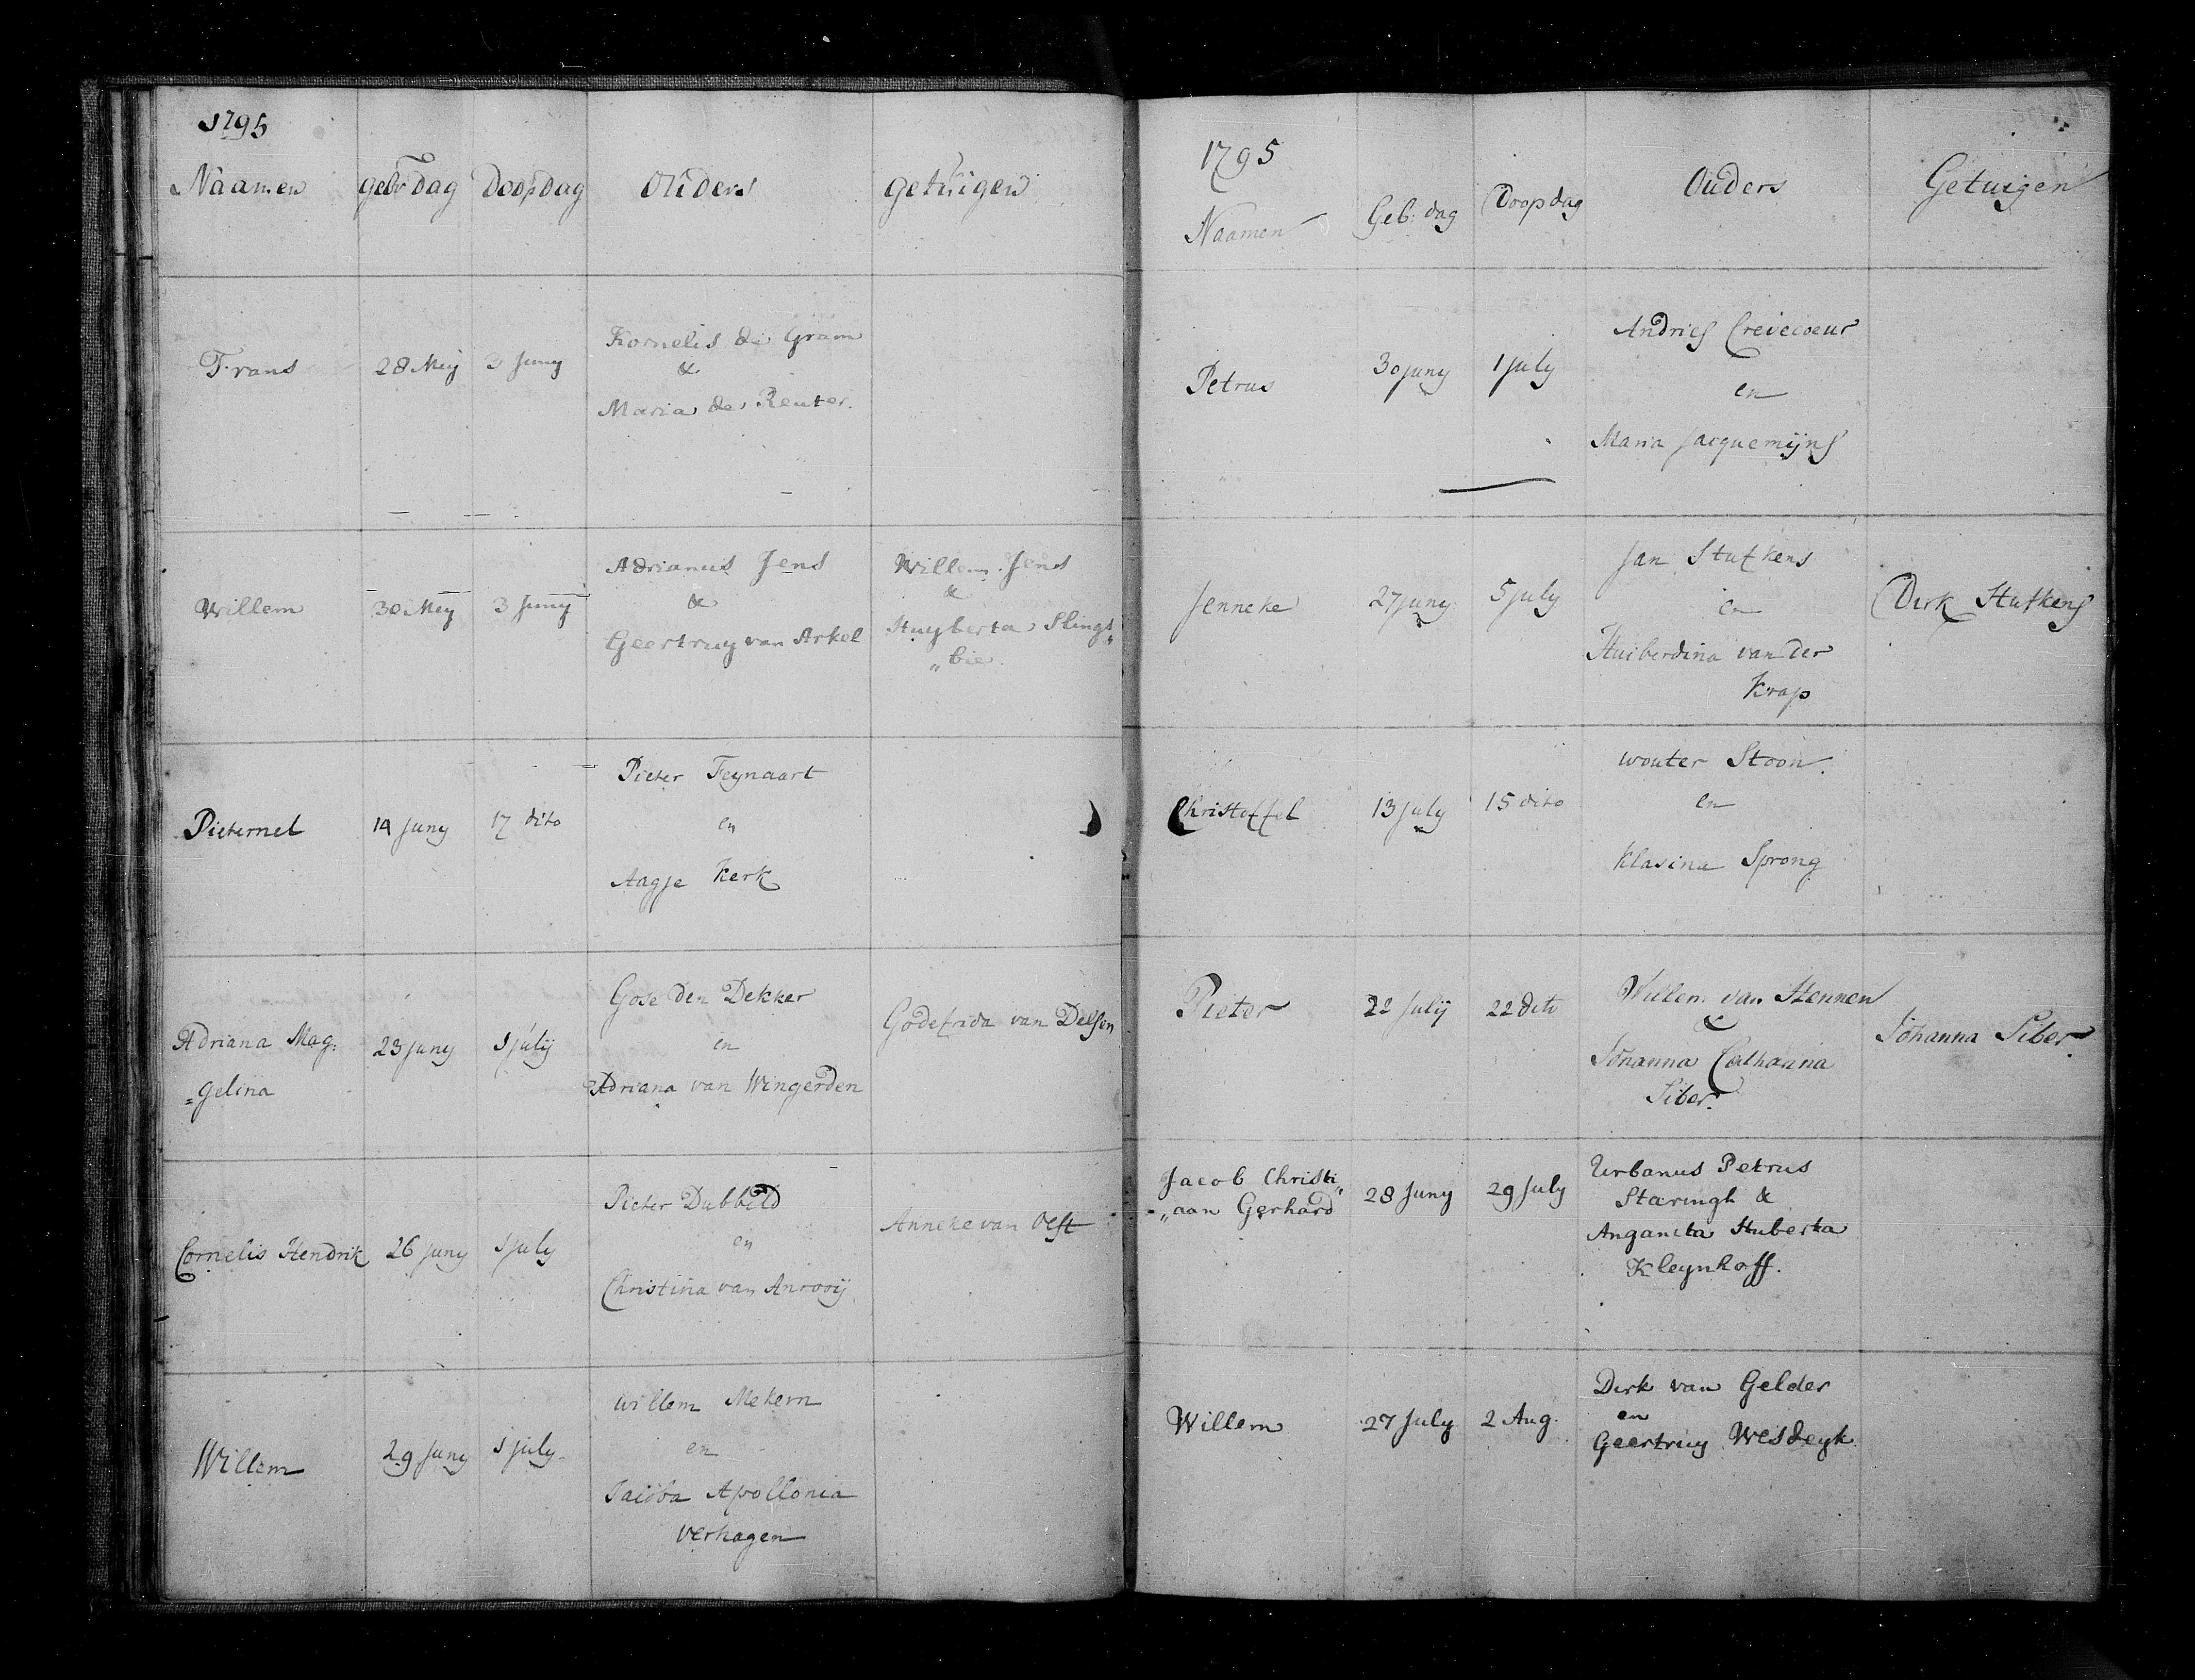 1795
Naamen gebr dag Doopdag Ouders getuigen
Frans 28 Mey 3 Juny
Kornelis de Gram
&
Maria de Reuter.
Willem 30 Mey 3 Juny
Adrianus Jens
&
Geertruy van Arkel
Willem Jens
&
Huyberta Slings„
„bie.
Pieternel 14 Juny 17 dito
Pieter Feynaart
en
Aagje Kerk
Adriana Mag:
=gelina
23 juny 1 july
Gose den Dekker
en
Adriana van Wingerden
Godefrida van Delsen
Cornelis Hendrik 26 juny 1 july
Pieter Dubbeld
en
Christina van Anrooij
Anneke van Oest
Willem 29 Juny 1 july
willem Mekern
en
Jacoba Apollonia
verhagen
1795
Naamen Geb: dag Doopdag Ouders Getuigen
Petrus 30 juny 1 july
Andries Crevecoeur
en
Maria Jacquemijns
Jenneke 27 juny 5 july
Jan Stufkens
en
Huiberdina van der
Krap
Dirk Stufkens
Christoffel 13 july 15 dito
wouter Stoon.
en
Klasina Sprong
Pieter 22 Julij 22 dito
Willem van Hennen
&
Johanna Catharina
Siber.
Johanna Siber.
Jacob Christi„
„aan Gerhard
28 Juny 29 July
Urbanus Petrus
Staringh &
Anganita Huberta
Kleynhoff.
Willem 27 July 2 Aug.
Dirk van Gelder
en
Geertruy Wesdeyk.